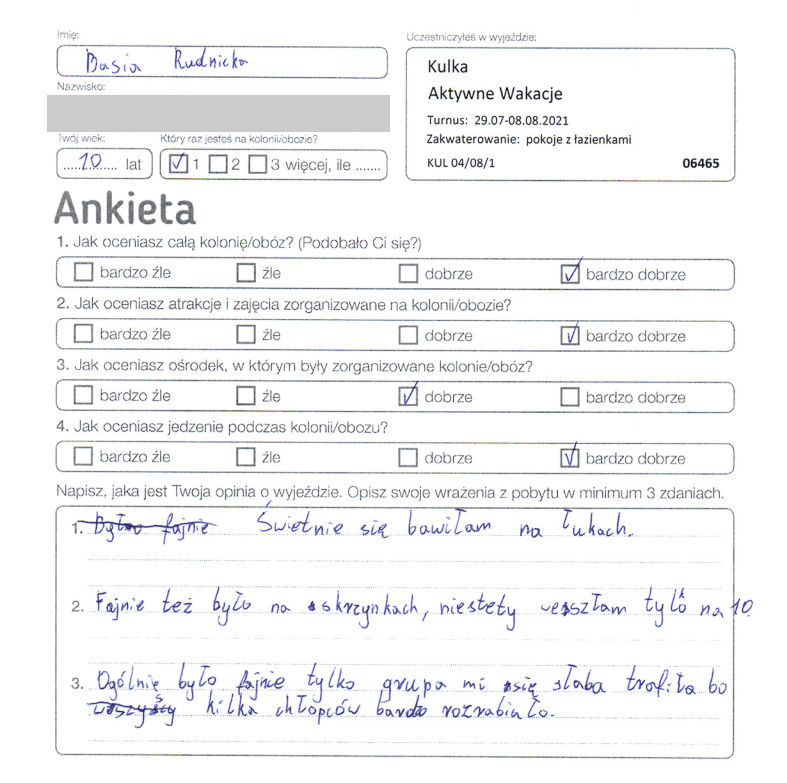 Imię:
Basia Rudnicka
Nazwisko:
Twój wiek:
10 lat
Który raz jesteś na kolonii/obozie?
1 2 3 więcej, ile .......
Uczestniczyłeś w wyjeździe:
Kulka
Aktywne Wakacje
Turnus: 29.07-08.08.2021
Zakwaterowanie: pokoje z łazienkami
KUL 04/08/1 06465
Ankieta
1. Jak oceniasz całą kolonię/obóz? (Podobało Ci się?)
bardzo źle źle dobrze bardzo dobrze
2. Jak oceniasz atrakcje i zajęcia zorganizowane na kolonii/obozie?
bardzo źle źle dobrze bardzo dobrze
3. Jak oceniasz ośrodek, w którym były zorganizowane kolonie/obóz?
bardzo źle źle dobrze bardzo dobrze
4. Jak oceniasz jedzenie podczas kolonii/obozu?
bardzo źle źle dobrze bardzo dobrze
Napisz, jaka jest Twoja opinia o wyjeździe. Opisz swoje wrażenia z pobytu w minimum 3 zdaniach.
1. Było fajnie Świetnie się bawiłam na łukach.
2. Fajnie też było na skrzynkach, niestety weszłam tylko na 10.
3. Ogólnie było fajnie tylko grupa mi się słaba trafiła bo
kilka chłopców bardzo rozrabiało.